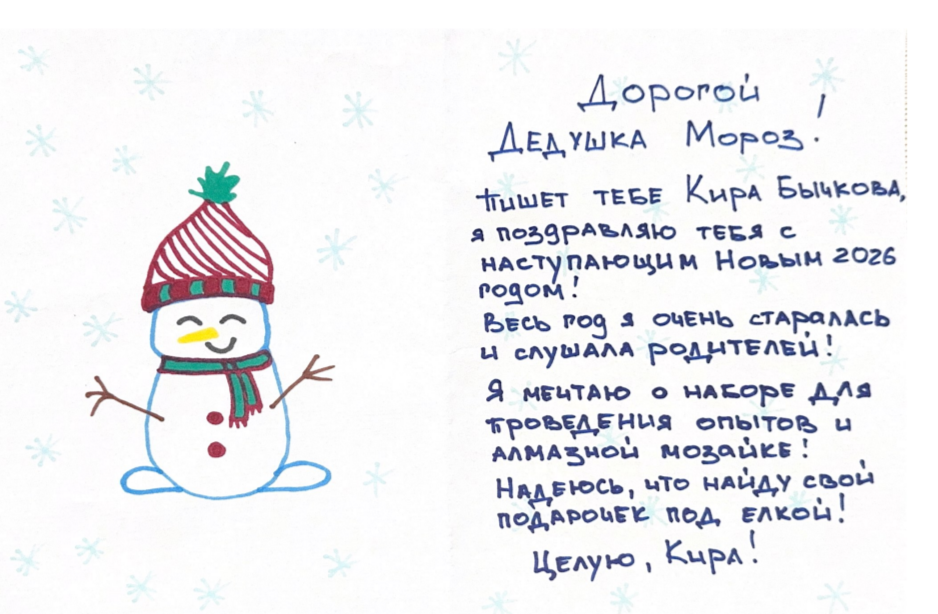 Дорогой
Дедушка Мороз!
Пишет тебе Кира Бычкова,
я поздравляю тебя с
наступающим Новым 2026
годом!
Весь год я очень старалась
и слушала родителей!
Я мечтаю о наборе для
проведения опытов и
алмазной мозайке!
Надеюсь, что найду свой
подарочек под елкой!
Целую, Кира!